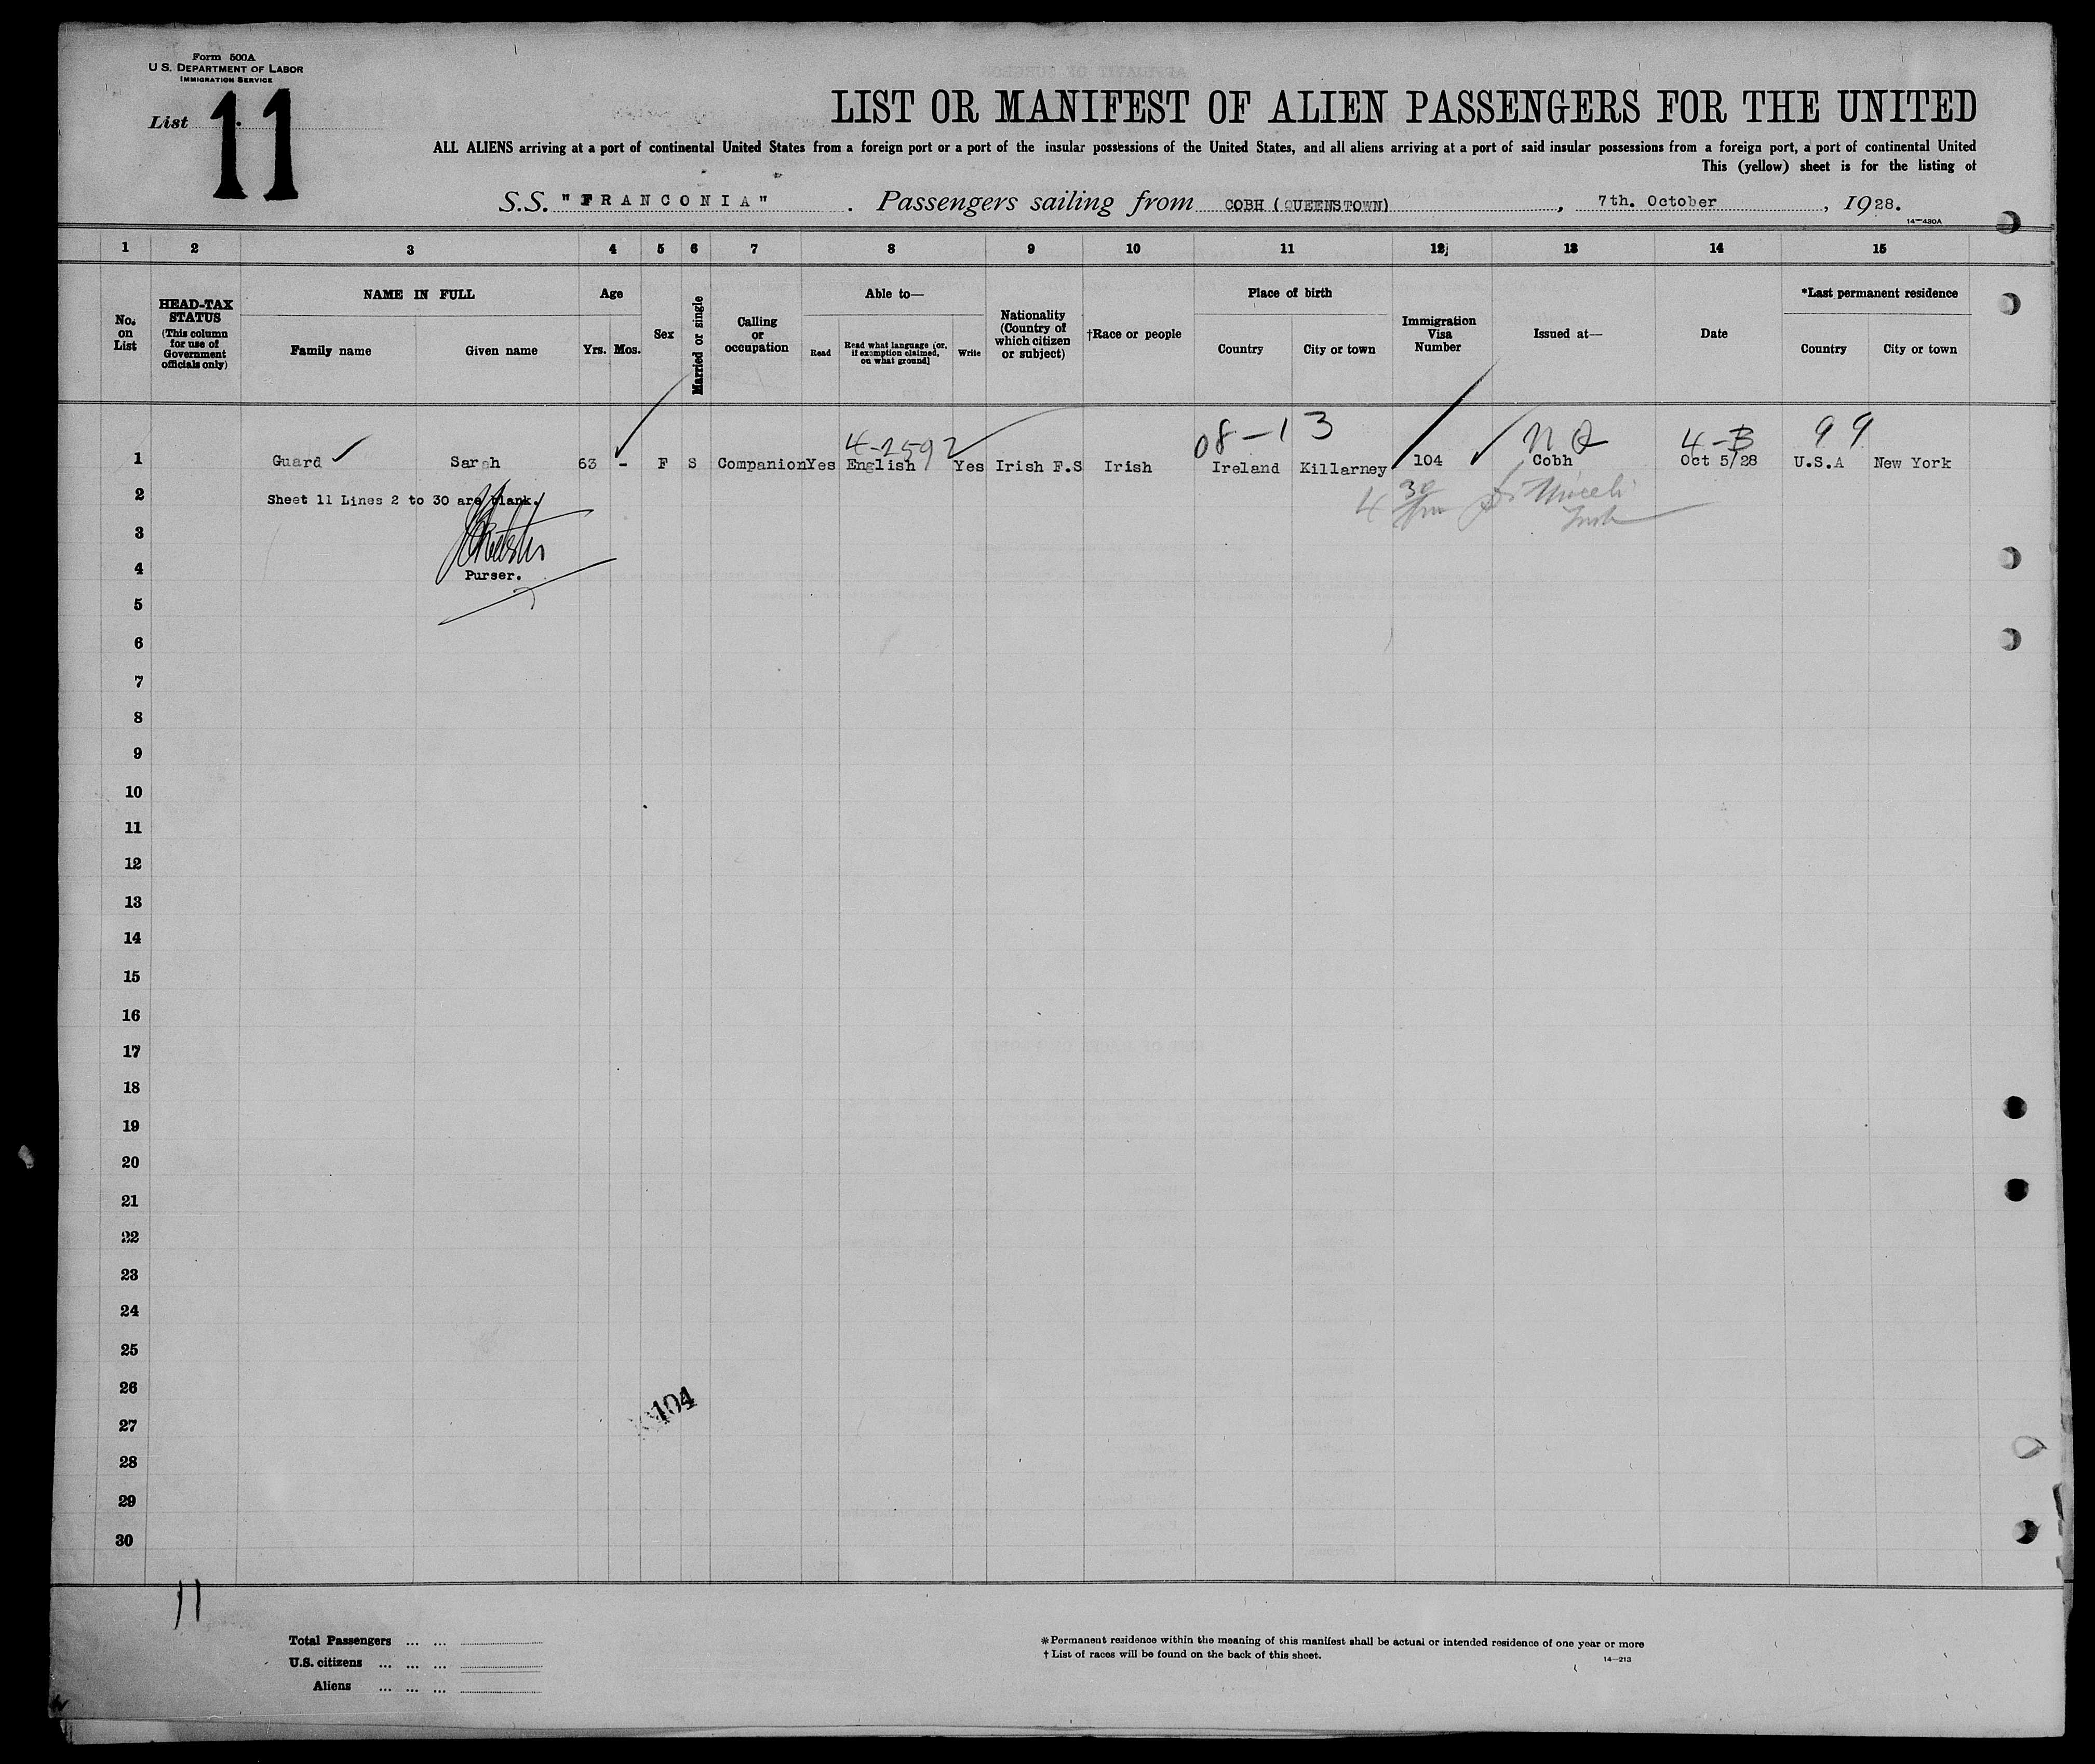 Form 500A
U S. DEPARTMENT OF LABOR
IMMIGRATION SERVICE
List 11
LIST OR MANIFEST OF ALIEN PASSENGERS FOR THE UNITED
ALL ALIENS arriving at a port of continental United States from a foreign port or a port of the insular possessions of the United States, and all aliens arriving at a port of said insular possessions from a foreign port, a port of continental United
This (yellow) sheet is for the listing of
S.S. "FRANCONIA" . Passengers sailing from COBH (QUEENSTOWN) , 7th. October , 1928.
14—430A
1 2 3 4 5 6 7 8 9 10 11 12 13 14 15
No. on List
HEAD-TAX STATUS (This column for use of Government officials only)
NAME IN FULL
Family name Given name
Age
Yrs. Mos.
Sex
Married or single
Calling or occupation
Able to—
Read
Read what language [or, if exemption claimed, on what ground]
Write
Nationality (Country of which citizen or subject)
†Race or people
Place of birth
Country City or town
Immigration Visa Number
Issued at—
Date
*Last permanent residence
Country City or town
4-2592 08-13 4-B 99
1 Guard Sarah 63 - F S Companion Yes English Yes Irish F.S Irish Ireland Killarney 104 Cobh Oct 5/28 U.S.A New York
2 Sheet 11 Lines 2 to 30 are blank.
3
4 Purser.
5
6
7
8
9
10
11
12
13
14
15
16
17
18
19
20
21
22
23
24
25
26
104
27
28
29
30
11
Total Passengers ... ...
U.S. citizens ... ... ...
Aliens ... ... ...
*Permanent residence within the meaning of this manifest shall be actual or intended residence of one year or more
† List of races will be found on the back of this sheet.
14—213